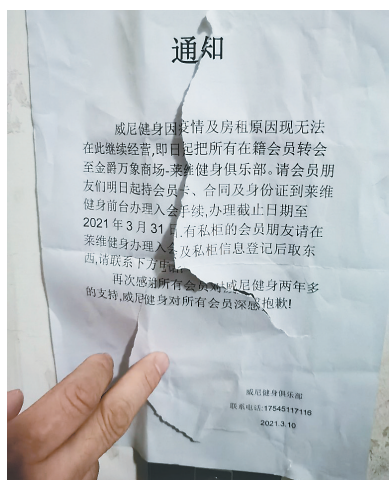 通知
威尼健身因疫情及房租原因现无法
在此继续经营,即日起把所有在籍会员转会
至金爵万象商场-莱维健身俱乐部。请会员朋
友们明日起持会员卡、合同及身份证到莱维
健身前台办理入会手续,办理截止日期至
2021年3月31日,有私柜的会员朋友请在
莱维健身办理入会及私柜信息登记后取东
西,请联系下方电话
再次感谢所有会员对威尼健身两年多
的支持,威尼健身对所有会员深感抱歉!
威尼健身俱乐部
联系电话:17545117116
2021.3.10